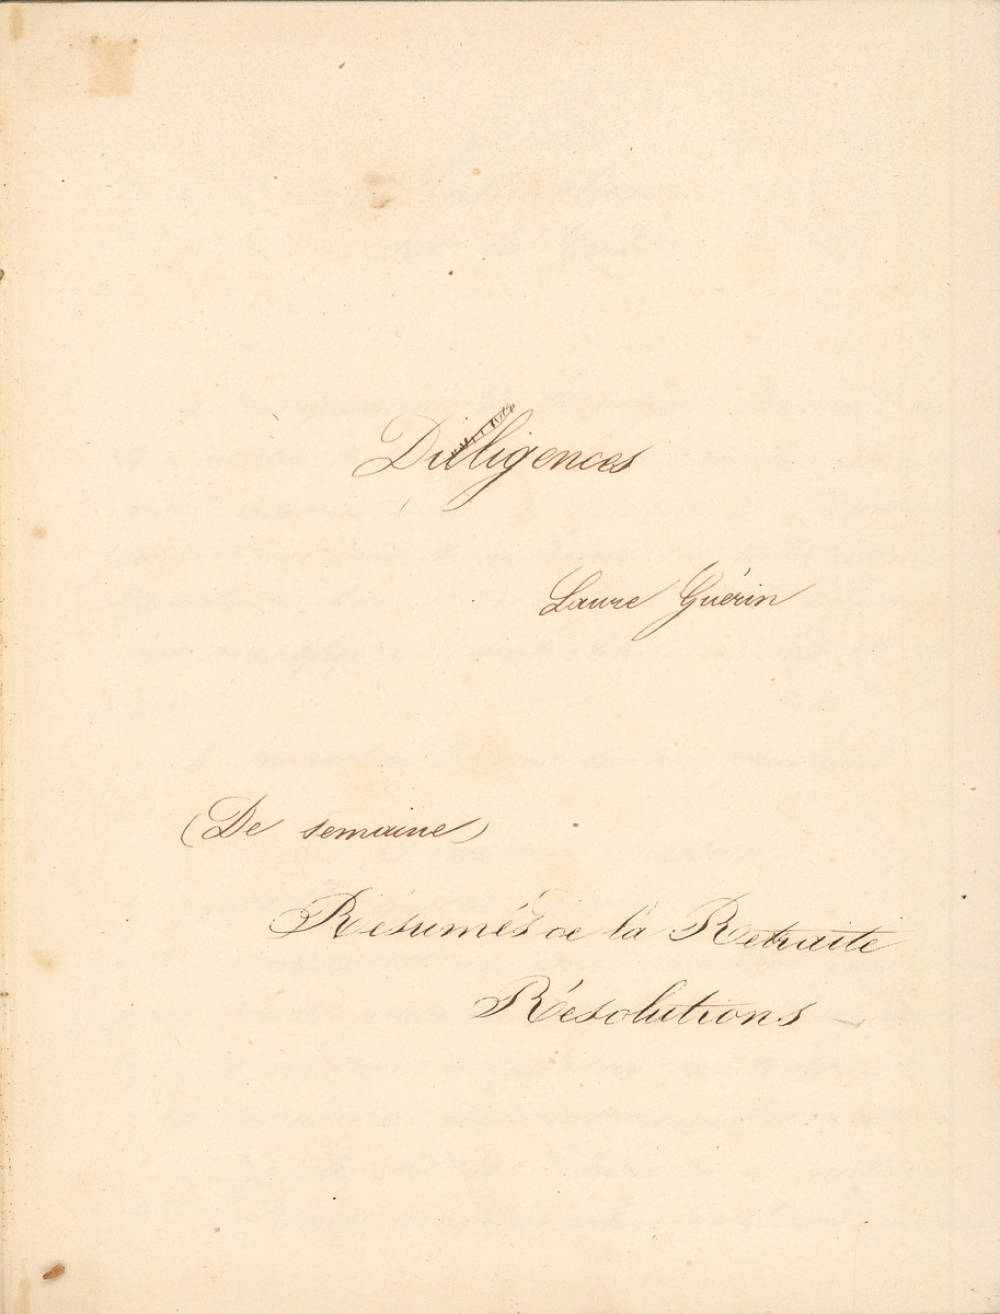 Diligences
Laure Guérin
(De semaine)
Résumés de la Retraite
Résolutions